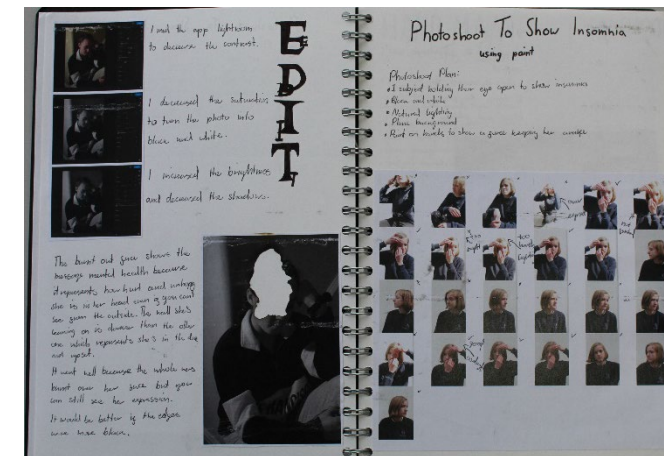 I used the app lightroom
to decrease the contrast.
I decreased the saturation
to turn the photo into
black and white.
I increased the brightness
and decreased the shadows.
EDIT
The burnt out face shows the
message mental health because
it represents how hurt and unhappy
she is in her head even if you can't
see from the outside. The wall she's
leaning on is darker than the other
one which represents she's in the dark
and upset.
It went well because the whole was
burnt over her face but you
can still see her expression.
It would be better if the edges
were more black.
Photoshoot To Show Insomnia
using paint
Photoshoot Plan:
• 1 subject holding their eye open to show insomnia
• Black and white
• Natural lighting
• Plain background
• Paint on hands to show a force keeping her awake
too